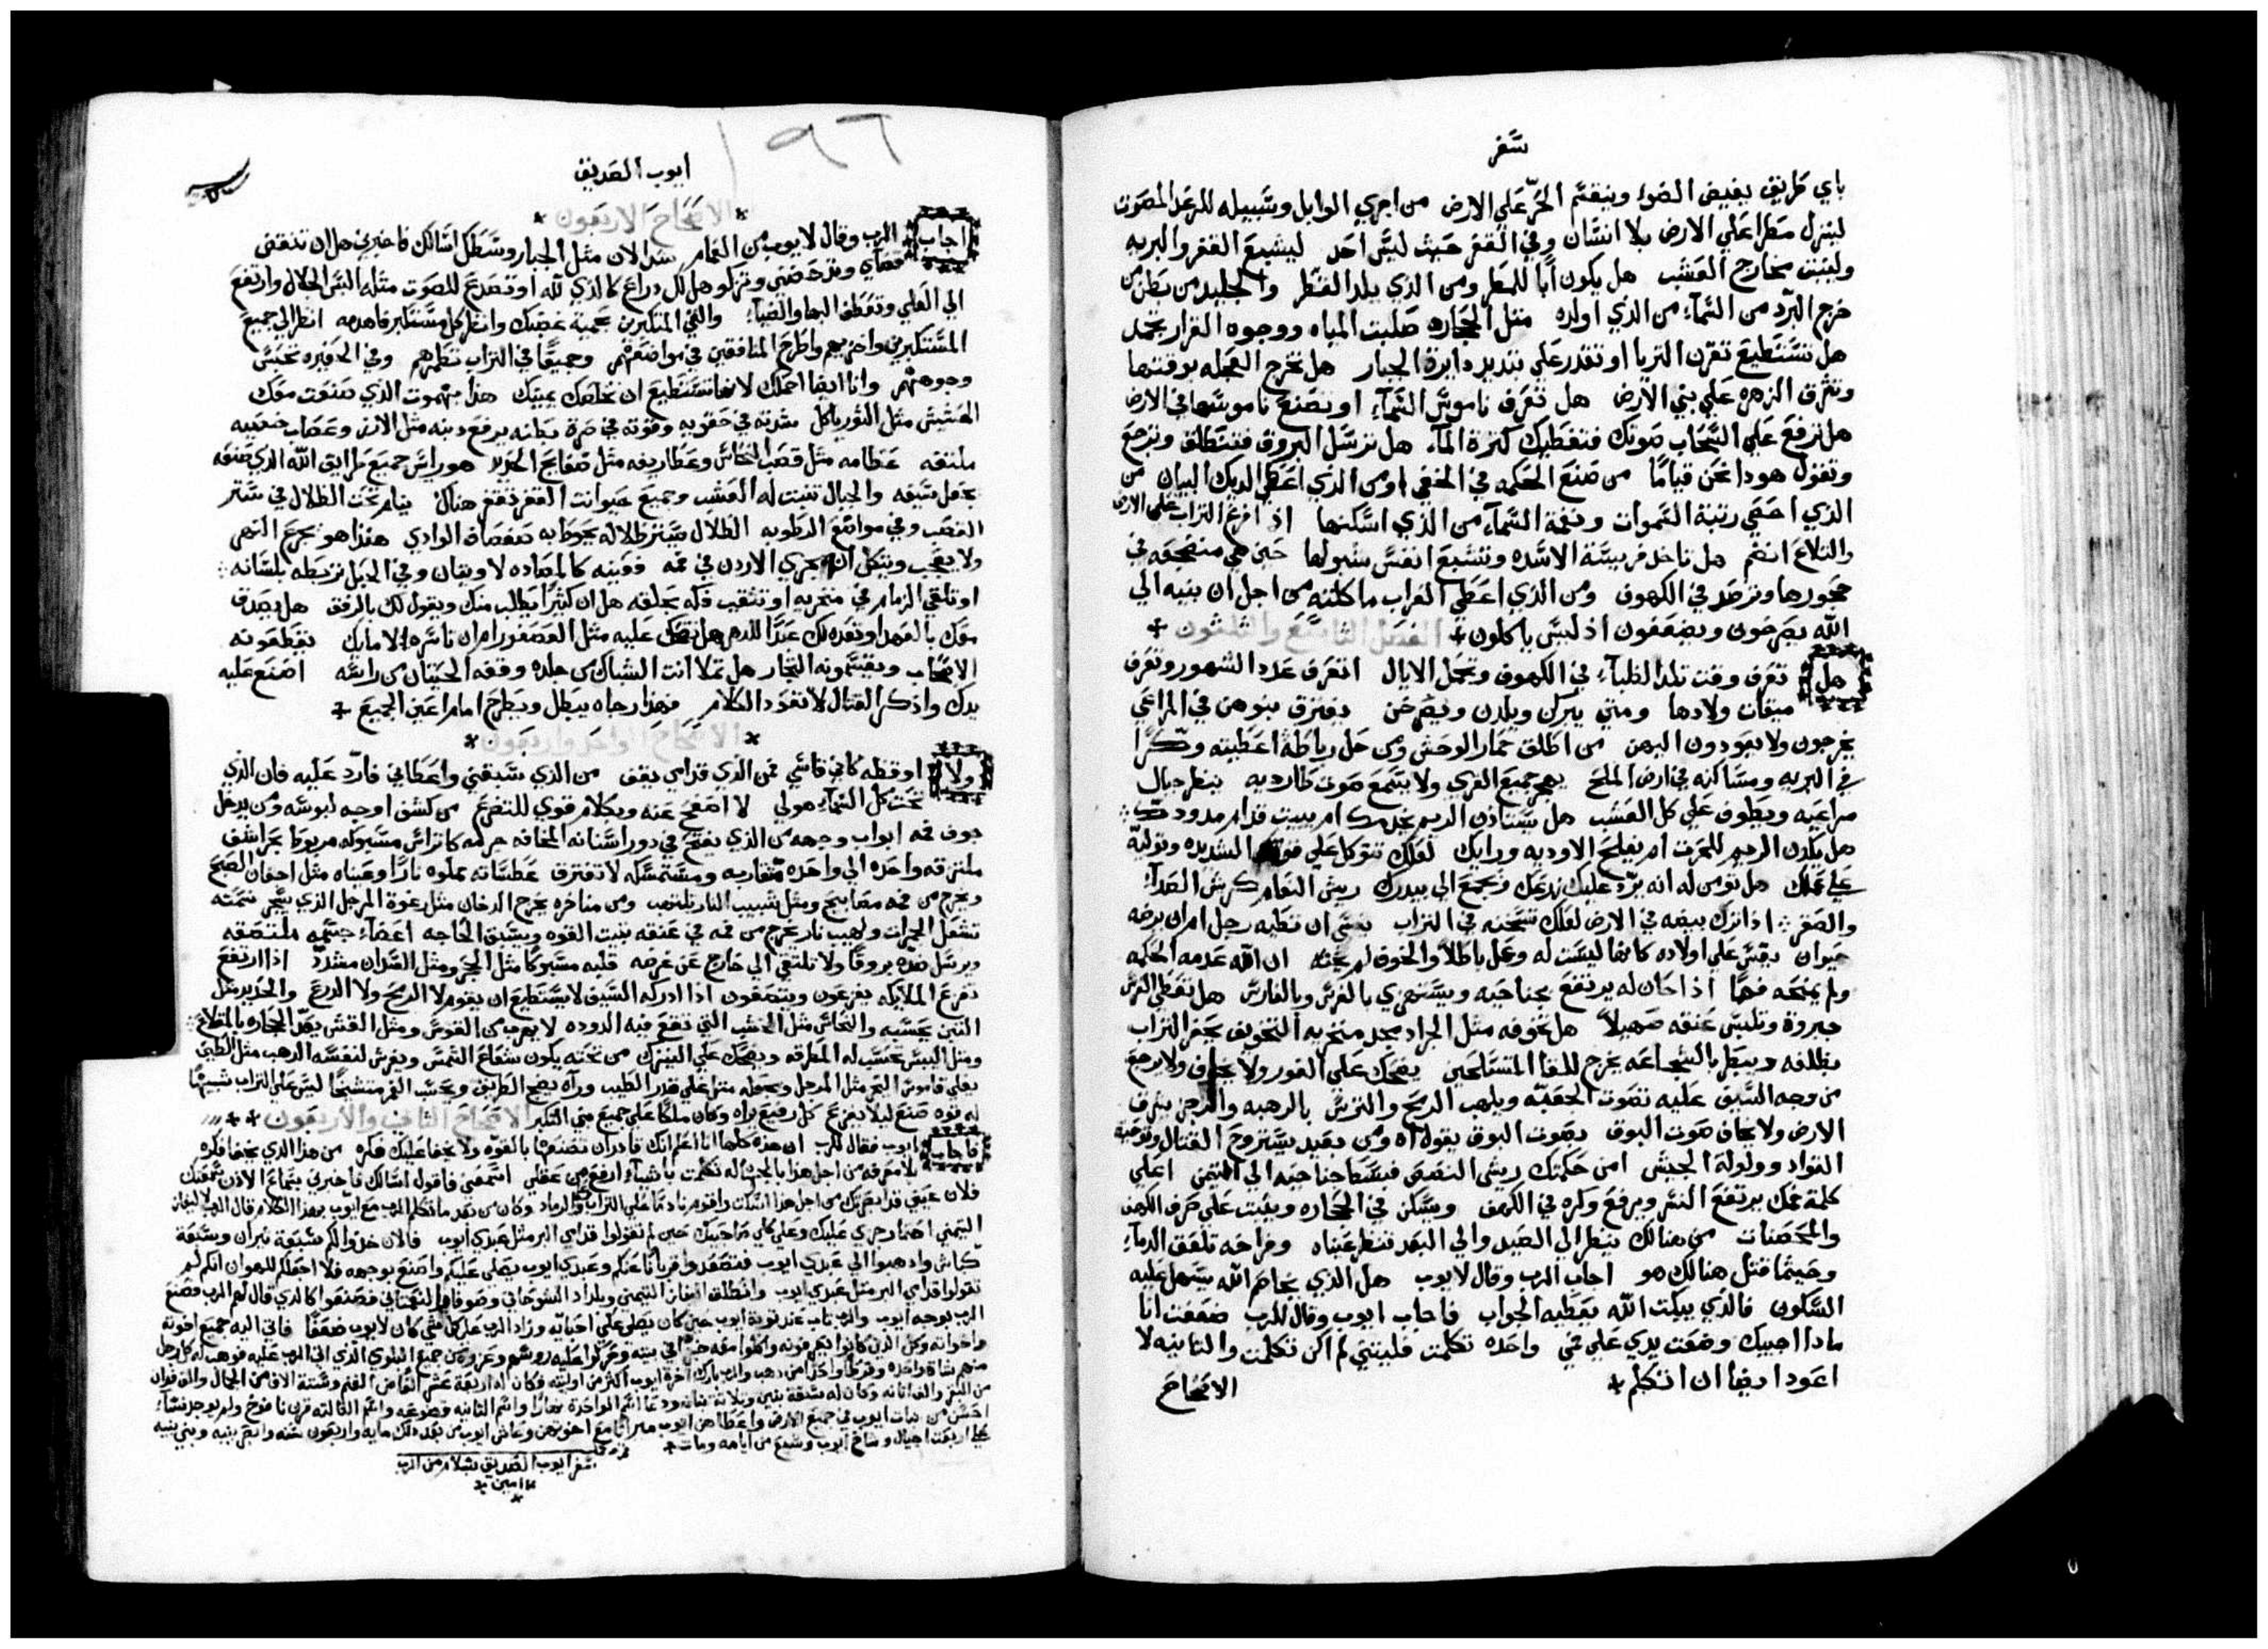 سفر
باي طريق يفيض الضوا وينقسم الحر علي الارض من اجري الوابل وسبيله للرعد المصوت
لينزل مطرا علي الارض بلا انسان وفي القفر حيث ليس احد ليشبع القفر والبريه
ولينبت مخارج العشب هل يكون ابا للمطر ومن الذي يلد القطر والجليد من بطن من
خرج البرد من السماء من الذي اولده مثل الحجاره صلبت المياه ووجوه القرار يجمد
هل تستطيع تقرن الثريا او تقدر علي تبديد دايرة الجبار هل تخرج العجله بوقتها
وتشرق الزهره علي بني الارض هل تعرف ناموس السماء او تصنع ناموسها في الارض
هل ترفع علي السحاب صوتك فتغطيك كثرة الماء هل ترسل البروق فتنطلق وترجع
وتقول هوذا نحن قياما من صنع الحكمه في المخفي او من الذي اعطي الديك البيان من
الذي احصي رتبة السموات ونغمة السماء من الذي اسكنها اذ افرغ التراب علي الارض
والتلاع انضم هل تاخذ فريسة الاسده وتشبع انفس شبولها حين هي منضجعه في
جحورها وترصد في الكهوف ومن الذي اعطي الغراب ماكلته من اجل ان بنيه الي
الله يصرخون ويضعفون اذ ليس ياكلون * الفصل التاسع والثلثون *
هل تعرف وقت تلد الظباء في الكهوف وتحمل الايال اتعرف عدد الشهور وتعرف
ميقات ولادها ومتي يبركن ويلدن ويصرخن يفترق بنوهن في المراعي
يخرجون ولا يعودون اليهن من اطلق حمار الوحش ومن حل رباطه اعطيته وكرا
في البريه ومساكنه في ارض الملح يهجر جميع القري ولا يسمع صوت طارديه ينظر جبال
مراعيه ويطوف علي كل العشب هل يستاذن الريم يخدمك ام يبيت قدام مدودك
هل يلدن الريم للحرث ام يفلح الاوديه وراك لعلك تتوكل علي قوته الشديده وتوليه
علي عملك هل تومن له انه يرد عليك زرعك ويجمع الي بيدرك ريش النعام كريش الصداء
والصقر اذا ترك بيضه في الارض لعلك تسخنه في التراب ينسي ان تطيه رجل ام ان برضه
حيوان يقسي علي اولاده كانها ليست له وعمل باطلا والخوف لم يحثه ان الله عدمه الحكمه
ولم يمنحه فهما اذا حان له يرتفع بجناحيه ويستهزي بالفرس وبالفارس هل تعطي الفرس
جبروة وتلبس عنقه صهيلا هل تخوفه مثل الجراد مجد منخريه التخويف يحفر التراب
بظلفه ويبطر بالشجاعه يخرج للقا المتسلحين يضحك علي الفور ولا يخاف ولا يرجع
من وجه السيف عليه تصوت الجعبه ويلهب الرمح والترس بالرهبه والرجز يبرق
الارض ولا يخاف صوت البوق بصوت البوق يقول اه ومن بعيد يستروح القتال وتوصية
القواد وولولة الجيش امن حكمتك ريش النقعق فبسط جناحيه الي التيمن اعلي
كلمة فمك يرتفع النسر ويرفع وكره في الكهف ويسكن في الحجاره ويثبت علي حرف الكهف
والمحصنات من هنالك ينظر الي الصيد والي البعد تنظر عيناه وفراخه تلعق الدماء
وحيثما قتل هنالك هو اجاب الرب وقال لايوب هل الذي يخاصم الله يسهل عليه
السكون فالذي يبكت الله يعطيه الجواب فاجاب ايوب وقال للرب ضعفت انا
ماذا اجيبك وضعت يدي علي فمي واحده تكلمت فليتني لم اكن تكلمت والثانيه لا
اعود ايضا ان اتكلم *
الاصحاح
١٩٦
ايوب الصديق
* الاصحاح الاربعون *
اجاب الرب وقال لايوب من الغمام شد الان مثل الجبار وسطك اسالك فاخبرني هل ان تنقض
قضاي وتدحضني وتزكو هل لك دراع كالذي لله او تصدع للصوت مثله البس الجلال وارتفع
الي العلي وتعطف البها والضياء والقي المتكبرين بحمية غضبك وانظر كل مستكبر فاهدمه انظر الي جميع
المستكبرين واخزيهم واطرح المنافقين في مواضعهم وجميعا في التراب تطمرهم وفي الحفيره تحبس
وجوههم وانا ايضا احمدك لانها تستطيع ان تخلصك يمينك هذا بهموت الذي صنعت معك
الحشيش مثل الثور ياكل شدته في حقويه وقوته في صرة بطنه يرفع دنبه مثل الارز وعصاب خصييه
ملتفه عظامه مثل قصب النحاس وغطاريفه مثل صفايح الحديد هو راس جميع طرايق الله الذي صنعه
يحمل سيفه والجبال تنبت له العشب وجميع حيوانات القفر تقفز هناك ينام تحت الظلال في ستر
القصب وفي مواضع الرطوبه الظلال يستر ظلاله يحوط به صفصاف الوادي هذا هو يجرع النهر
ولا يعجب ويتكل ان يجري الاردن في فمه
او تلقي الزمام في منخريه او تثقب فكه بحلقه هل ان كثيرا يطلب منك ويقول لك بالرفق هل يصدق
معك بالعهد او تعده لك عبدا للدهر هل تضحك عليه مثل العصفور ام ان تاسره لامايك يقطعونه
الاصحاب ويقتسمونه التجار هل تملا انت الشباك من جلده وقفه الحيتان من راسه اصنع عليه
يدك واذكر القتال لا تعود الكلام فهذا رجاه يبطل ويطرح امام اعين الجميع *
* الاصحاح الواحد واربعون *
ولا اوقظه كاني قاسي فمن الذي قدامي يقف من الذي سبقني واعطاني فارد عليه فان الذي
تحت كل السماء هو لي لا اصفح عنه وبكلام قوي للتضرع من كشف اوجه لبوسه ومن يدخل
جوف فمه ابواب وجهه من الذي يفتح في دور اسنانه المخافه جرمه كاتراس مسبوكه مربوط بحراشف
ملتزقه واحده الي واحده متقاربه ومستمسكه لا تفترق عطسانه مملوه نارا وعيناه مثل اجفان الصبح
ويخرج من فمه مصابيح ومثل شبيب النار تلتهب ومن مناخره يخرج الدخان مثل رغوة المرجل الذي يشجر نسمته
تشعل الجمرات ولهيب نار يخرج من فمه في عنقه تبيت القوه ويسبق الحاجه اعضاء جسمه ملتصقه
ويرسل ضده بروقا ولا تلتقي الي خارج عن غرضه قلبه مسبوكا مثل الحجر ومثل السدان مشددا اذا ارتفع
تفزع الملايكه يفزعون وينصفون اذا ادركه السيف لا يستطيع ان يقوم لا الرمح ولا الدرع والحديد مثل
التبن يحسبه والنحاس مثل الخشب التي تقع فيه الدوده لا يهرب من القوس ومثل القش يعد الحجاره بالمقلاع
ومثل اليبس تحسب له المطرقه ويضحك علي النيزك من تحته يكون شعاع الشمس ويفرش لنفسه الذهب مثل الطين
يغلي قاموس البحر مثل المرجل ويجعله مثل غلي قدر الطيب وراه يضيء الطريق ويحسب القمر متشيخا ليس علي التراب شبيها
له قوه صنع ليلا يفزع كل رفيع يراه وكان ملكا علي جميع بني التكبر الاصحاح الثاني والاربعون * *
فاجاب ايوب فقال للرب ان هذه كلها انا اعلم انك قادر ان تصنعها بالقوه ولا يخفا عليك فكره من هذا الذي يخفا فكره
بلا معرفه من اجل هذا بالجهاله تكلمت باشياء ارفع من عقلي استمعني فاقول اسالك فاخبرني بسماع الاذن سمعتك
فلان عيني قد ابصرتك من اجل هذا اسكت واقوم نادما علي التراب والرماد وكان من بعد ما تكلم الرب مع ايوب بهذا الكلام قال الرب لاليفاز
التيمني احتما رجزي عليك وعلي كلي صاحبيك حين لم تقولوا قدامي البر مثل عبدي ايوب فالان خذوا لكم سبعة ثيران وسبعة
كباش واذهبوا الي عبدي ايوب فتصعدوا قربانا عنكم وعبدي ايوب يصلي عليكم واصنع بوجهه فلا اجعلكم للهوان انكم لم
تقولوا قدامي البر مثل عبدي ايوب وانطلق اليفاز التيمني وبلداد الشوحاني وصوفار النعماتي فصنعوا كالذي قال لهم الرب فصنع
الرب بوجه ايوب والرب تاب عند توبة ايوب حين كان يصلي علي احبايه وزاد الرب علي كل شي كان لايوب ضعفا فاتي اليه جميع اخوته
واخواته وكل الذين كانوا يعرفونه واكلوا معه خبزا في بيته وحركوا عليه روسهم وعزوه من جميع البلوي الذي اتي الرب عليه فوهب له كل رجل
منهم شاة واحده وقرطا واحدا من دهب والرب بارك اخرة ايوب اكثر من اوليته فكان له اربعة عشر الفا من الغنم وستة الاف من الجمال والف فدان
من البقر والف اتانه وكان له سبعة بنين وثلاثة بنات ودعا اسم الواحدة نهارا واسم الثانيه قصوعه واسم الثالثه قرن نافوخ ولم يوجد نساء
احسن من بنات ايوب في جميع الارض واعطاهن ايوب ميراثا مع اخوتهن وعاش ايوب من بعد ذلك مايه واربعون سنه وابصر بنيه وبني بنيه
علي اربعت اجيال وشاخ ايوب وشبع من ايامه ومات *
سفر ايوب الصديق بسلام من الرب
امين